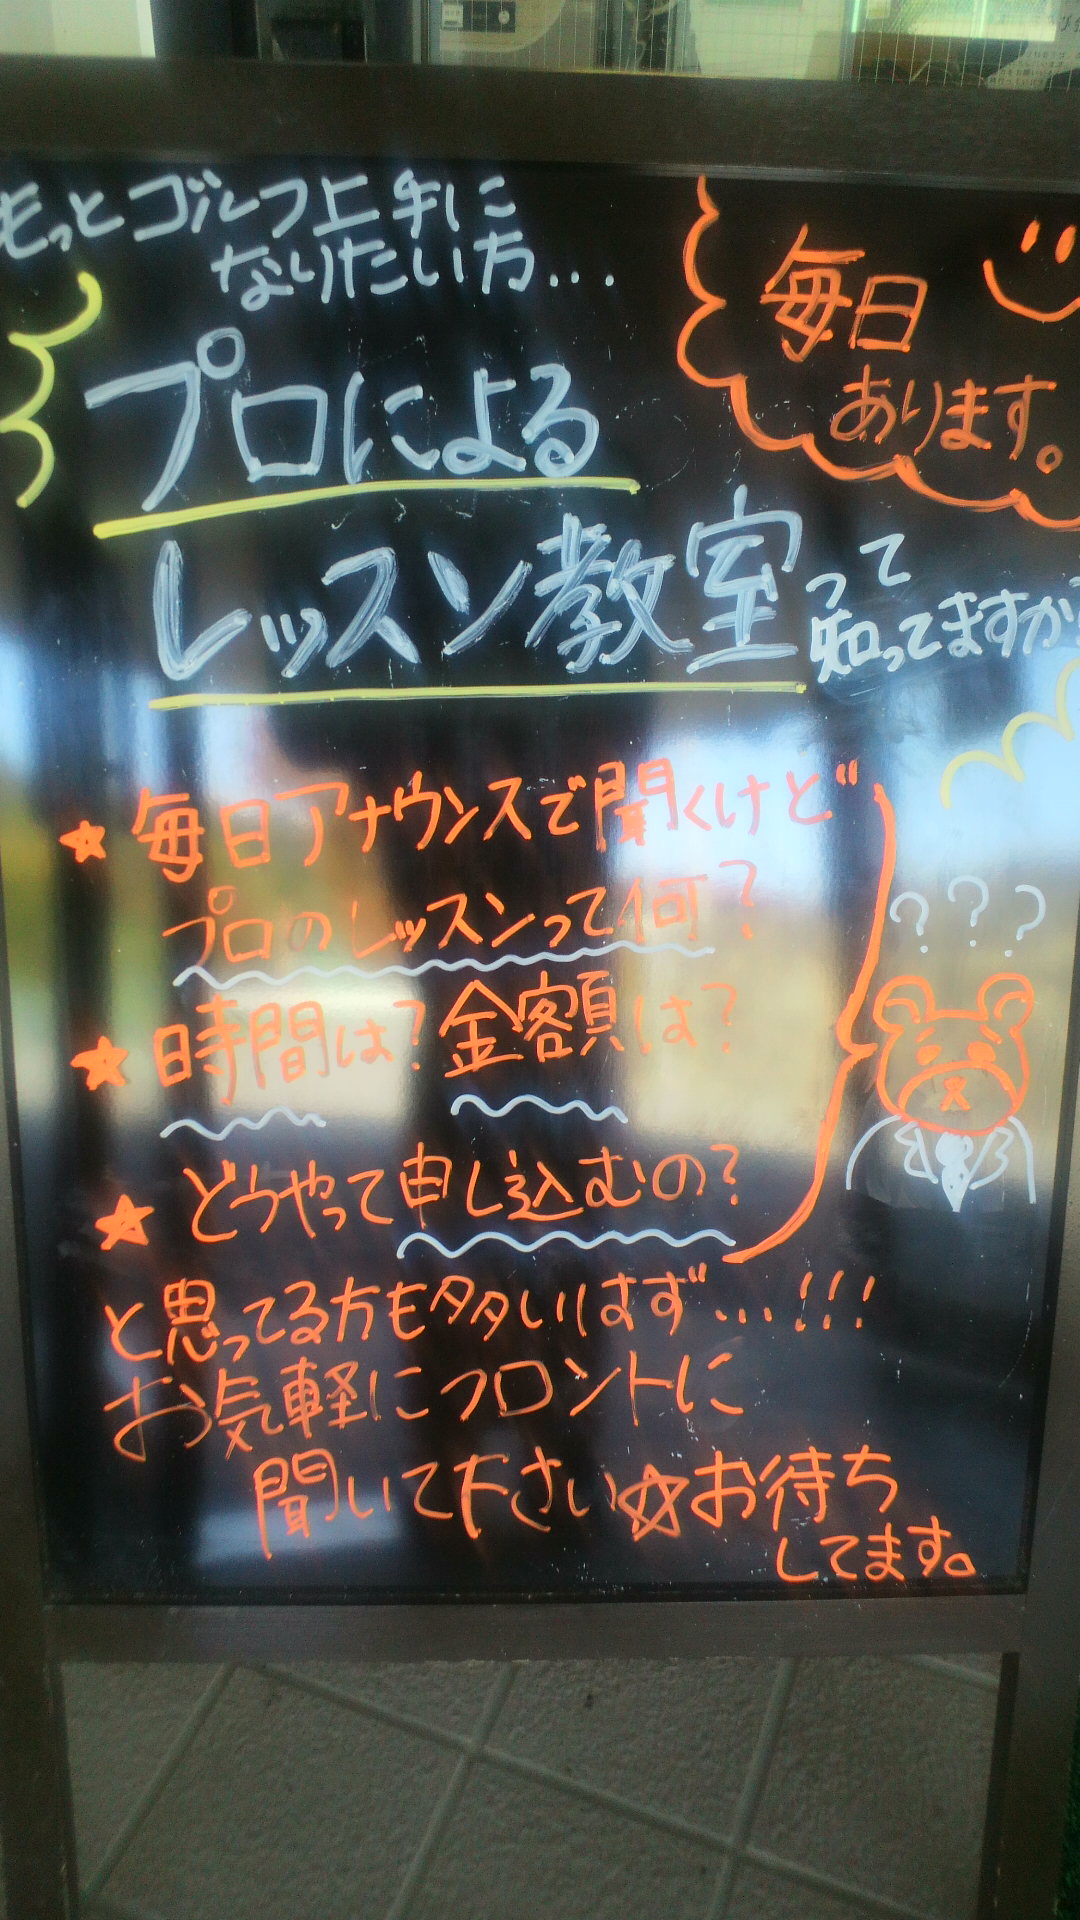 もっとゴルフ上手に
なりたい方...
毎日
あります。
プロによる
レッスン教室って
知ってますか?
★毎日アナウンスで聞くけど
プロのレッスンって何?
★時間は?金額は?
★どうやって申し込むの?
???
と思ってる方も多いはず...!!!
お気軽にフロントに
聞いて下さい☆お待ち
してます。